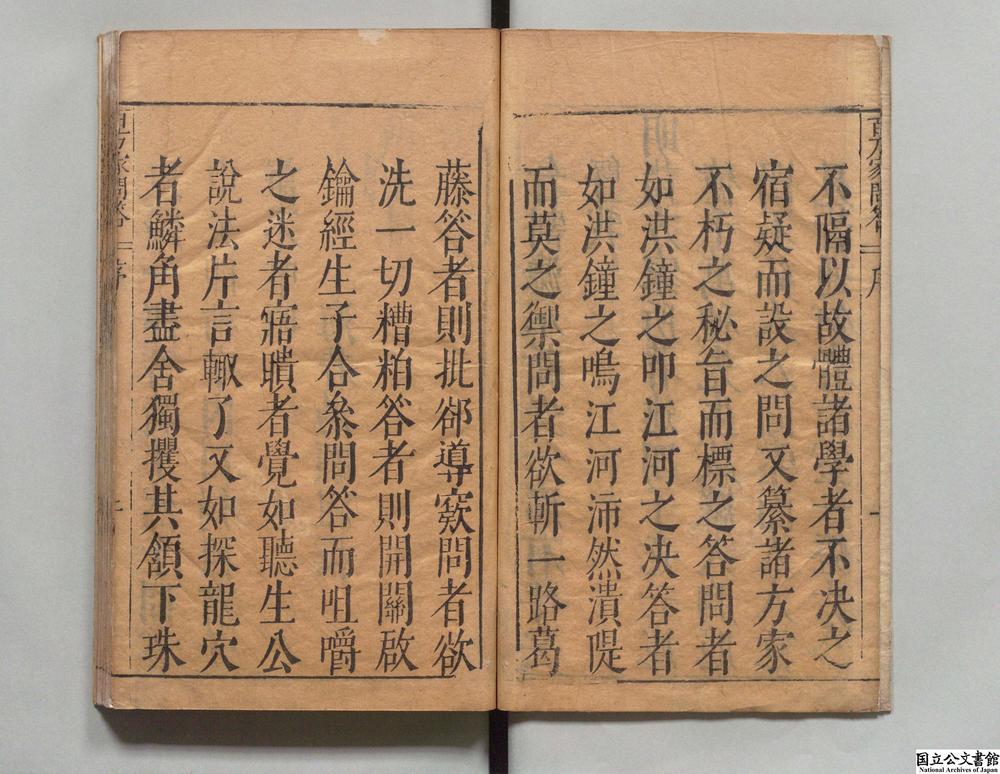 不隔以故體諸學者不决之
宿疑而設之問又纂諸方家
不朽之秘旨而標之答問者
如洪鐘之叩江河之决答者
如洪鐘之鳴江河沛然潰隄
而莫之禦問者欲斬一路葛
藤答者則批郤導窾問者欲
洗一切糟粕答者則開關啟
鑰經生子合叅問答而咀嚼
之迷者寤瞶者覺如聽生公
說法片言輙了又如探龍穴
者鱗角盡舍獨攫其頷下珠
家問答
序
国立公文書館
National Archives of Japan